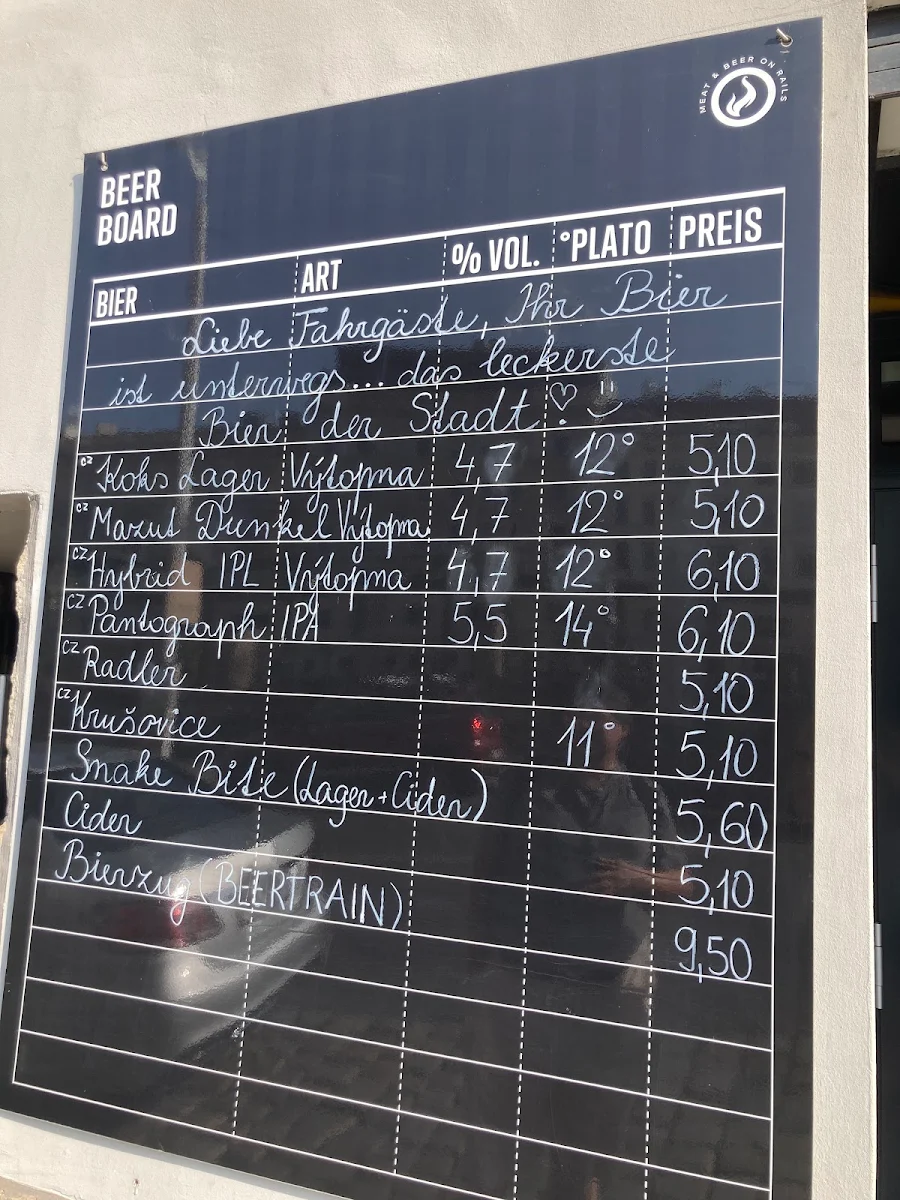 MEAT & BEER ON RAILS
BEER
BOARD
BIER ART % VOL. °PLATO PREIS
Liebe Fahrgäste, Ihr Bier
ist unterwegs... das leckerste
Bier der Stadt ♡ :)
CZ Koks Lager Výtopna 4,7 12° 5,10
CZ Mazut Dunkel Výtopna 4,7 12° 5,10
CZ Hybrid IPL Výtopna 4,7 12° 6,10
CZ Pantograph IPA 5,5 14° 6,10
CZ Radler 5,10
CZ Krušovice 11° 5,10
Snake Bite (Lager + Cider) 5,60
Cider 5,10
Bierzug (BEERTRAIN) 9,50